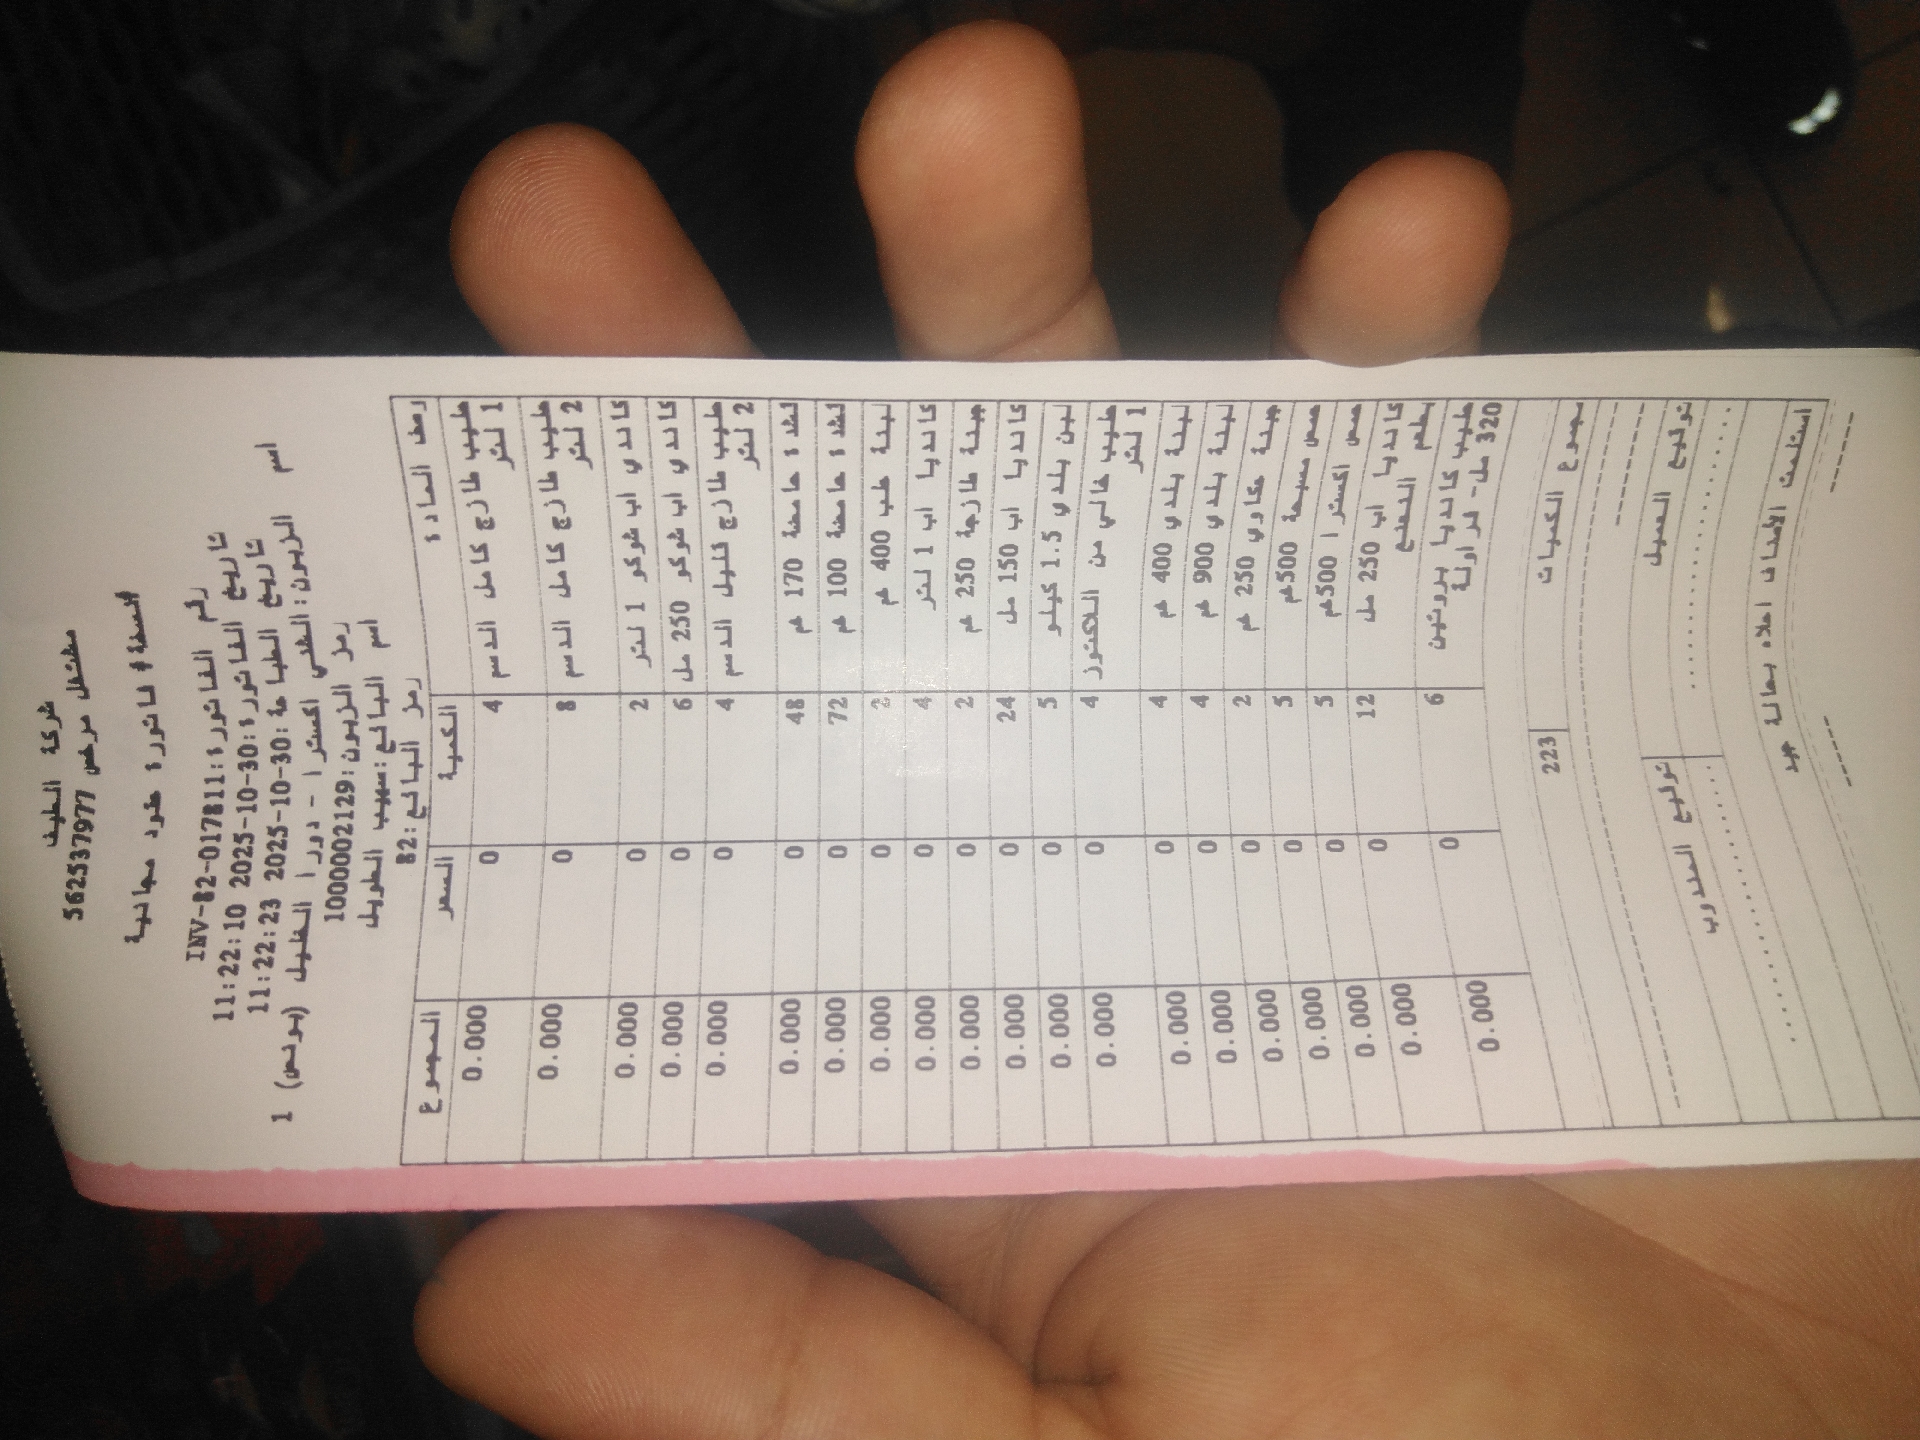 شركة الطيف
مشتغل مرخص 562537977
#نسخة# فاتورة عقود مجانية
رقم الفاتورة: INV-82-017811
تاريخ الفاتورة: 2025-10-30 11:22:10
تاريخ الطباعة: 2025-10-30 11:22:23
اسم الزبون: الشني اكسترا - دورا الخليل (يونس) 1
رمز الزبون: 1000002129
اسم البائع: صهيب الطويل
رمز البائع: 82
وصف المادة الكمية السعر المجموع
حليب طازج كامل الدسم 1 لتر 4 0 0.000
حليب طازج كامل الدسم 2 لتر 8 0 0.000
كاندي اب شوكو 1 لتر 2 0 0.000
كاندي اب شوكو 250 مل 6 0 0.000
حليب طازج قليل الدسم 2 لتر 4 0 0.000
قشدة حامضة 170 غم 48 0 0.000
قشدة حامضة 100 غم 72 0 0.000
لبنة علب 400 غم 2 0 0.000
كانديا اب 1 لتر 4 0 0.000
جبنة طازجة 250 غم 2 0 0.000
كانديا اب 150 مل 24 0 0.000
لبن بلدي 1.5 كيلو 5 0 0.000
حليب خالي من اللاكتوز 1 لتر 4 0 0.000
لبنة بلدي 400 غم 4 0 0.000
لبنة بلدي 900 غم 4 0 0.000
جبنة عكاوي 250 غم 2 0 0.000
حمص مسبحة 500غم 5 0 0.000
حمص اكسترا 500غم 5 0 0.000
كانديا اب 250 مل بطعم النعنع 12 0 0.000
حليب كانديا بروتين 320 مل- فراولة 6 0 0.000
مجموع الكميات 223
توقيع العميل توقيع المندوب
استلمت الأصناف اعلاه بحالة جيد